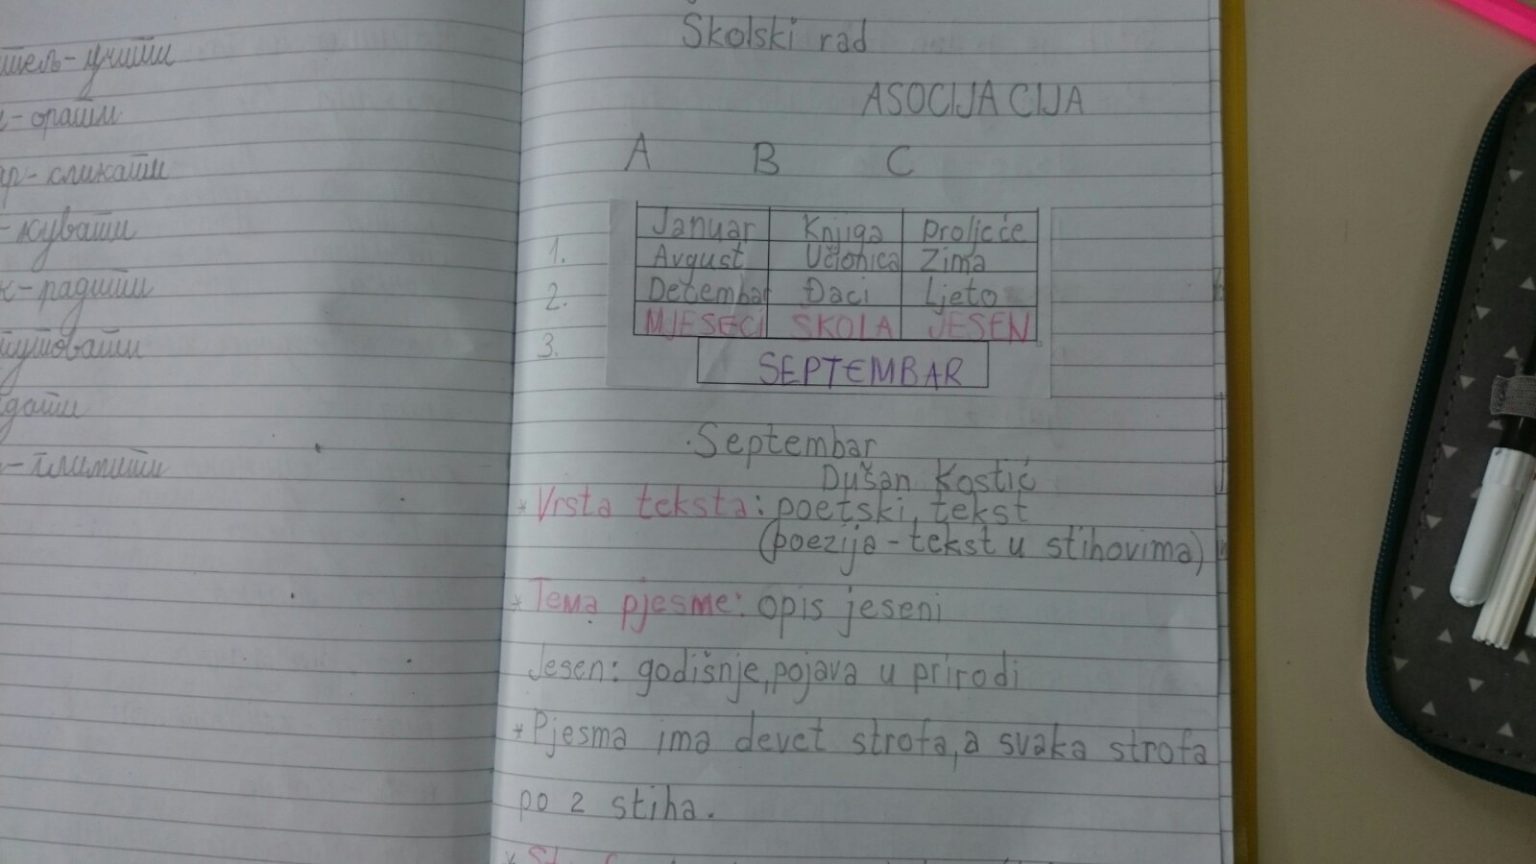 учити
орати
сликати
кувати
радити
Školski rad
ASOCIJACIJA
A B C
Januar Knjiga Proljeće
1. Avgust Učionica Zima
2. Decembar Đaci Ljeto
3. MJESECI ŠKOLA JESEN
SEPTEMBAR
Septembar
Dušan Kostić
* Vrsta teksta: poetski tekst
(poezija - tekst u stihovima)
* Tema pjesme: opis jeseni
Jesen: godišnje, pojava u prirodi
* Pjesma ima devet strofa, a svaka strofa
po 2 stiha.